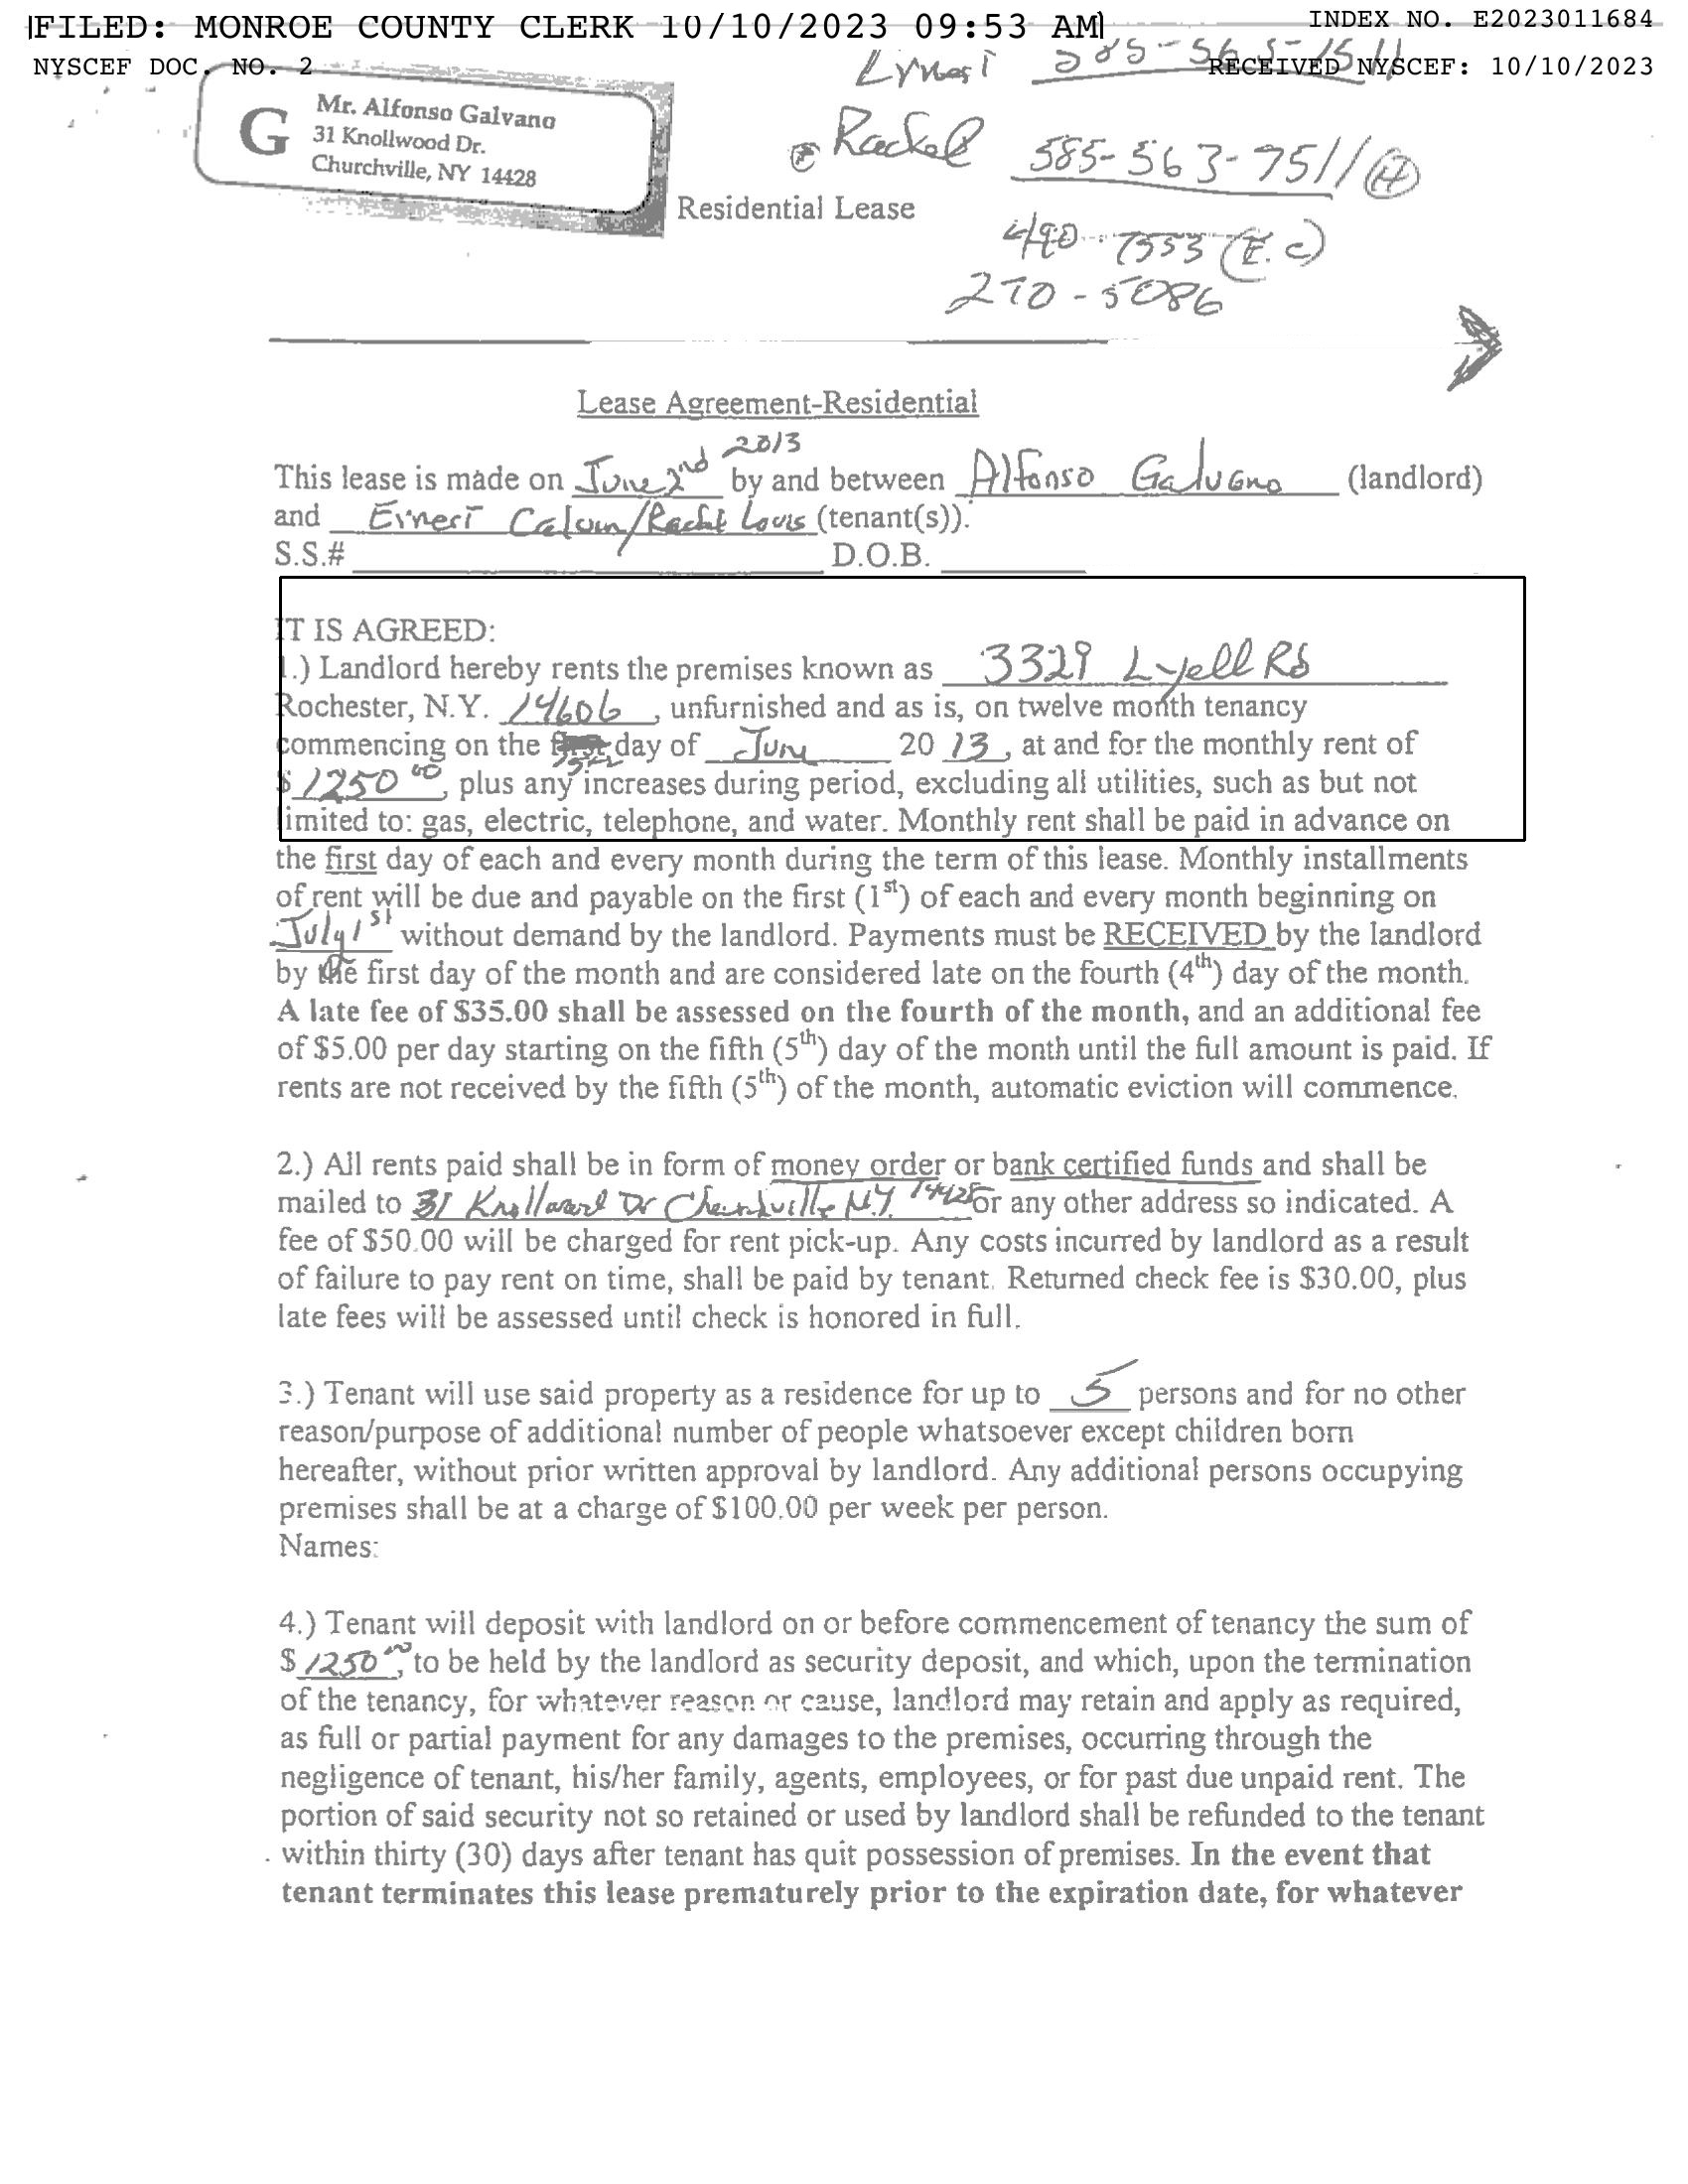 FILED: MONROE COUNTY CLERK 10/10/2023 09:53 AM
INDEX NO. E2023011684
NYSCEF DOC. NO. 2
RECEIVED NYSCEF: 10/10/2023
Mr. Alfonso Galvano
G 31 Knollwood Dr.
Churchville, NY 14428
Rachel 585-563-7511 (H)
Residential Lease
490-7553 (E.C)
270-5086
Lease Agreement-Residential
2013
This lease is made on June 2nd by and between Alfonso Galvano (landlord)
and Ernest Calvin/Rachel Louis (tenant(s)).
S.S.# D.O.B.
IT IS AGREED:
1.) Landlord hereby rents the premises known as 3329 Lyell Rd
Rochester, N.Y. 14606, unfurnished and as is, on twelve month tenancy
commencing on the first day of June 2013, at and for the monthly rent of
$ 1250 00, plus any increases during period, excluding all utilities, such as but not
limited to: gas, electric, telephone, and water. Monthly rent shall be paid in advance on
the first day of each and every month during the term of this lease. Monthly installments
of rent will be due and payable on the first (1st) of each and every month beginning on
July 1st without demand by the landlord. Payments must be RECEIVED by the landlord
by the first day of the month and are considered late on the fourth (4th) day of the month.
A late fee of $35.00 shall be assessed on the fourth of the month, and an additional fee
of $5.00 per day starting on the fifth (5th) day of the month until the full amount is paid. If
rents are not received by the fifth (5th) of the month, automatic eviction will commence.
2.) All rents paid shall be in form of money order or bank certified funds and shall be
mailed to 31 Knollwood Dr Churchville N.Y. 14428 or any other address so indicated. A
fee of $50.00 will be charged for rent pick-up. Any costs incurred by landlord as a result
of failure to pay rent on time, shall be paid by tenant. Returned check fee is $30.00, plus
late fees will be assessed until check is honored in full.
3.) Tenant will use said property as a residence for up to 5 persons and for no other
reason/purpose of additional number of people whatsoever except children born
hereafter, without prior written approval by landlord. Any additional persons occupying
premises shall be at a charge of $100.00 per week per person.
Names:
4.) Tenant will deposit with landlord on or before commencement of tenancy the sum of
$ 1250 00, to be held by the landlord as security deposit, and which, upon the termination
of the tenancy, for whatever reason or cause, landlord may retain and apply as required,
as full or partial payment for any damages to the premises, occurring through the
negligence of tenant, his/her family, agents, employees, or for past due unpaid rent. The
portion of said security not so retained or used by landlord shall be refunded to the tenant
within thirty (30) days after tenant has quit possession of premises. In the event that
tenant terminates this lease prematurely prior to the expiration date, for whatever